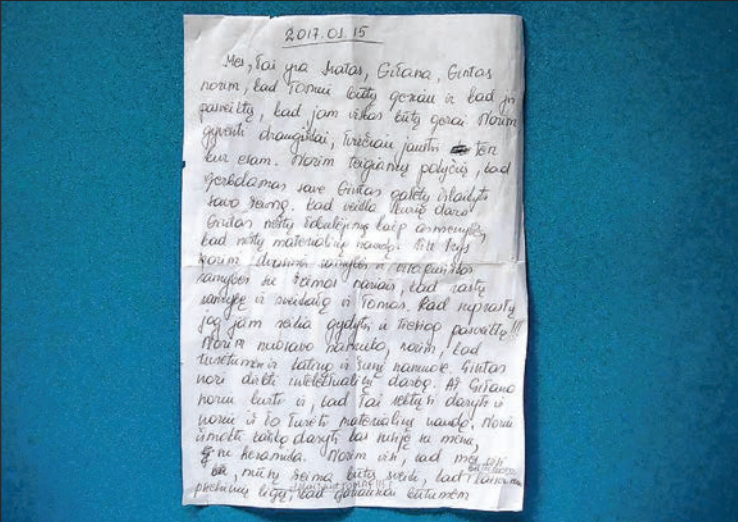 2017.01.15
Mes, tai yra Matas, Gitana, Gintas
norim, kad Tomui būtų geriau ir kad jis
pasveiktų, kad jam viskas būtų gerai. Norim
gyventi draugiškai, turėčiau jaustis ten
kur esam. Norim teigiamų pokyčių, kad
gerbdamas save Gintas galėtų išlaikyti
savo šeimą. Kad veikla kurią daro
Gintas neštų tobulėjimą kaip asmenybę,
kad neštų materialią naudą. Tik
norim dvasinės ramybės ir
ramybės su šeimos nariais, kad rastų
ramybę ir sveikatą ir Tomas. Kad suprastų
jog jam reikia gydytis ir tiesiog pasveiktų!!!
Norim nuosavo namuko, norim, kad
turėtumėm ir katiną ir šunį namuose. Gintas
nori dirbti intelektualinį darbą. Aš Gitana
noriu kurti ir, kad tai sektųsi daryti ir
noriu iš to turėti materialinę naudą. Noriu
išmokti daryti kas susiję su menu,
ne keramika. Norim visi, kad mes visi
mūsų šeima būtų sveiki, kad
ligų, kad galutinai būtumėm